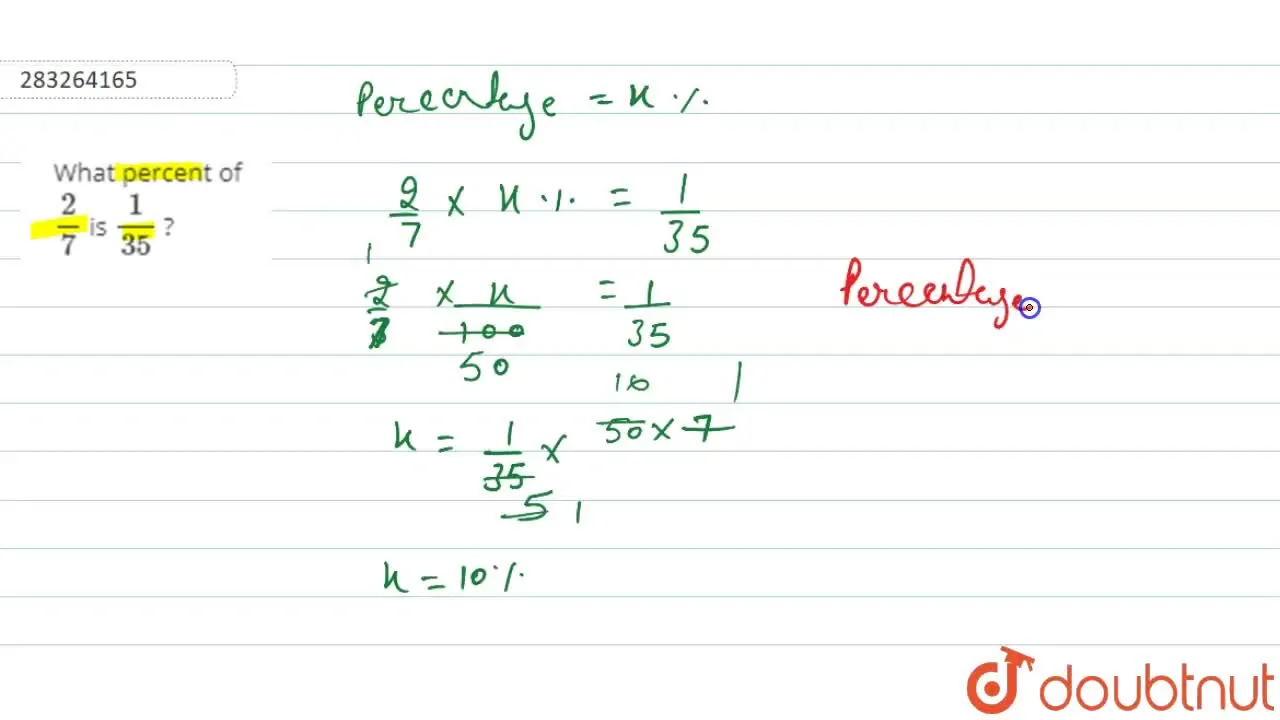 283264165
What percent of
2/7 is 1/35 ?
Percentage = x %
2/7 × x % = 1/35
1
2/7 × x/100 = 1/35
50
10 1
x = 1/35 × 50 × 7
5 1
x = 10%
Percentage
doubtnut